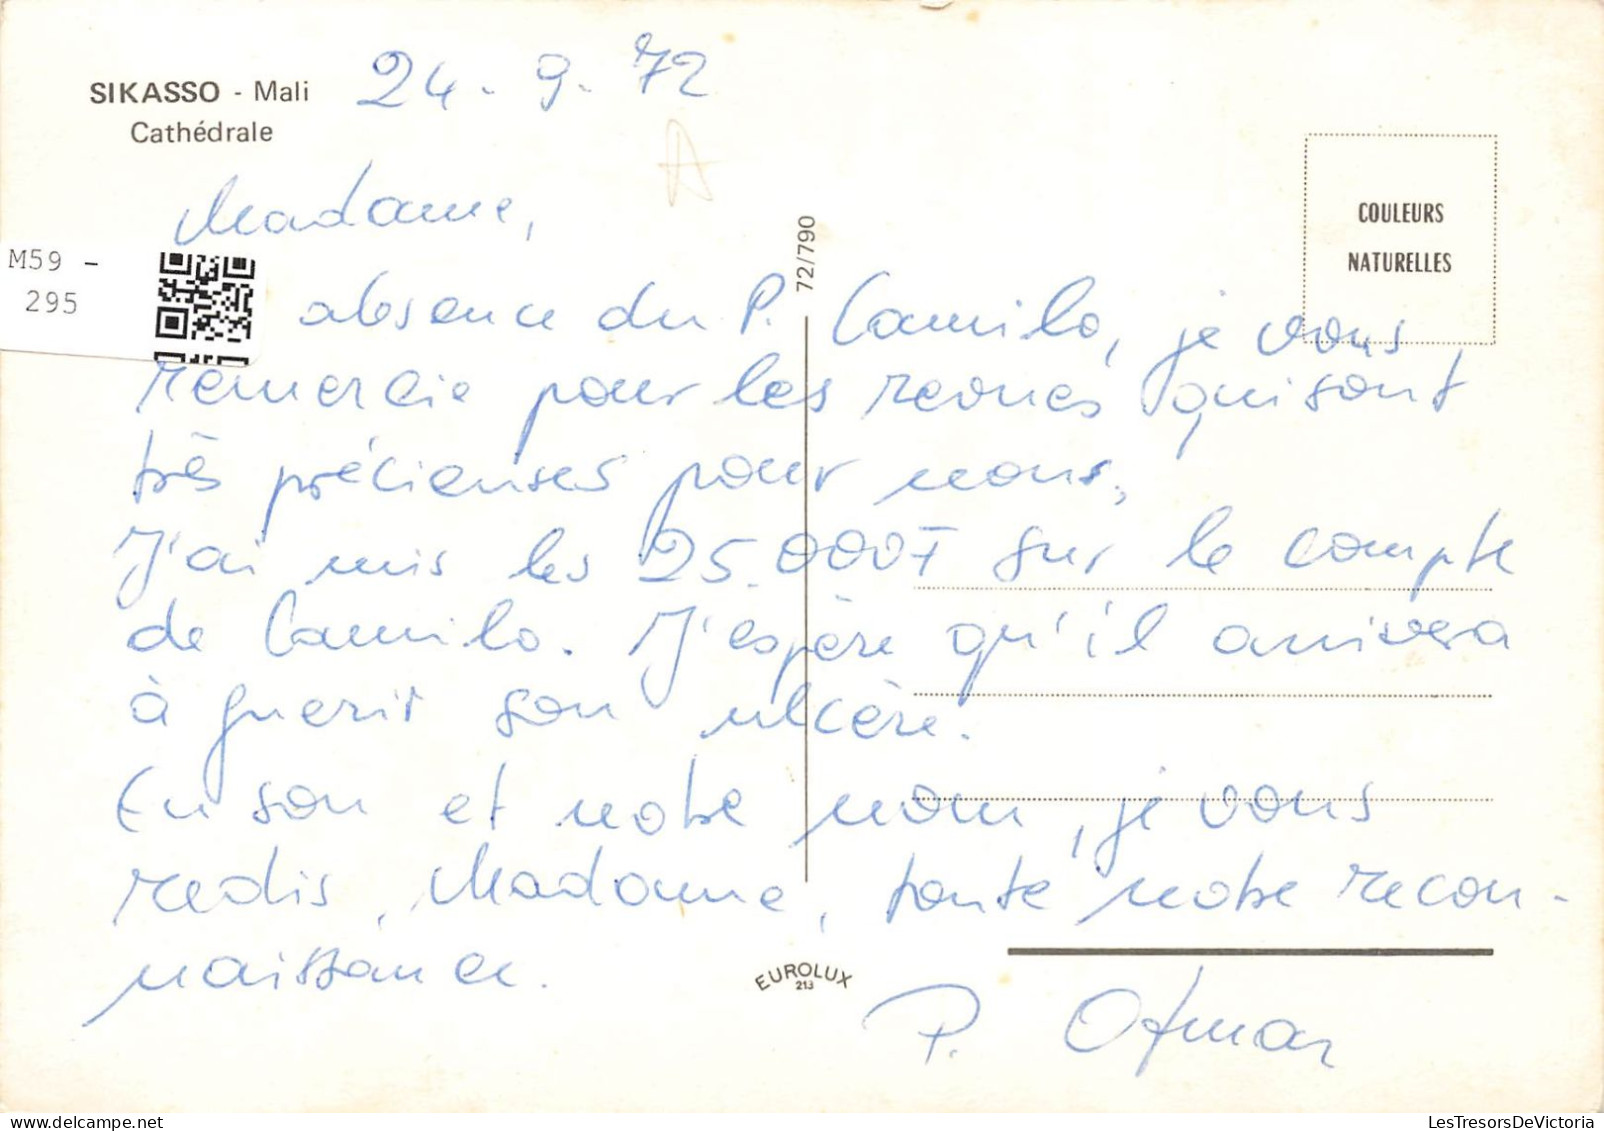 SIKASSO - Mali 24-9-72
Cathédrale
Madame,
M59 -
295
absence du P. Camilo, je vous
remercie pour les revues qui sont
très précieuses pour nous.
J'ai mis les 25.000F sur le compte
de Camilo. J'espère qu'il arrivera
à guerir son ulcère.
En son et notre nom, je vous
redis, Madame, toute notre recon-
naissance.
P. Otmar
72/790
COULEURS
NATURELLES
EUROLUX
213
LesTresorsDeVictoria